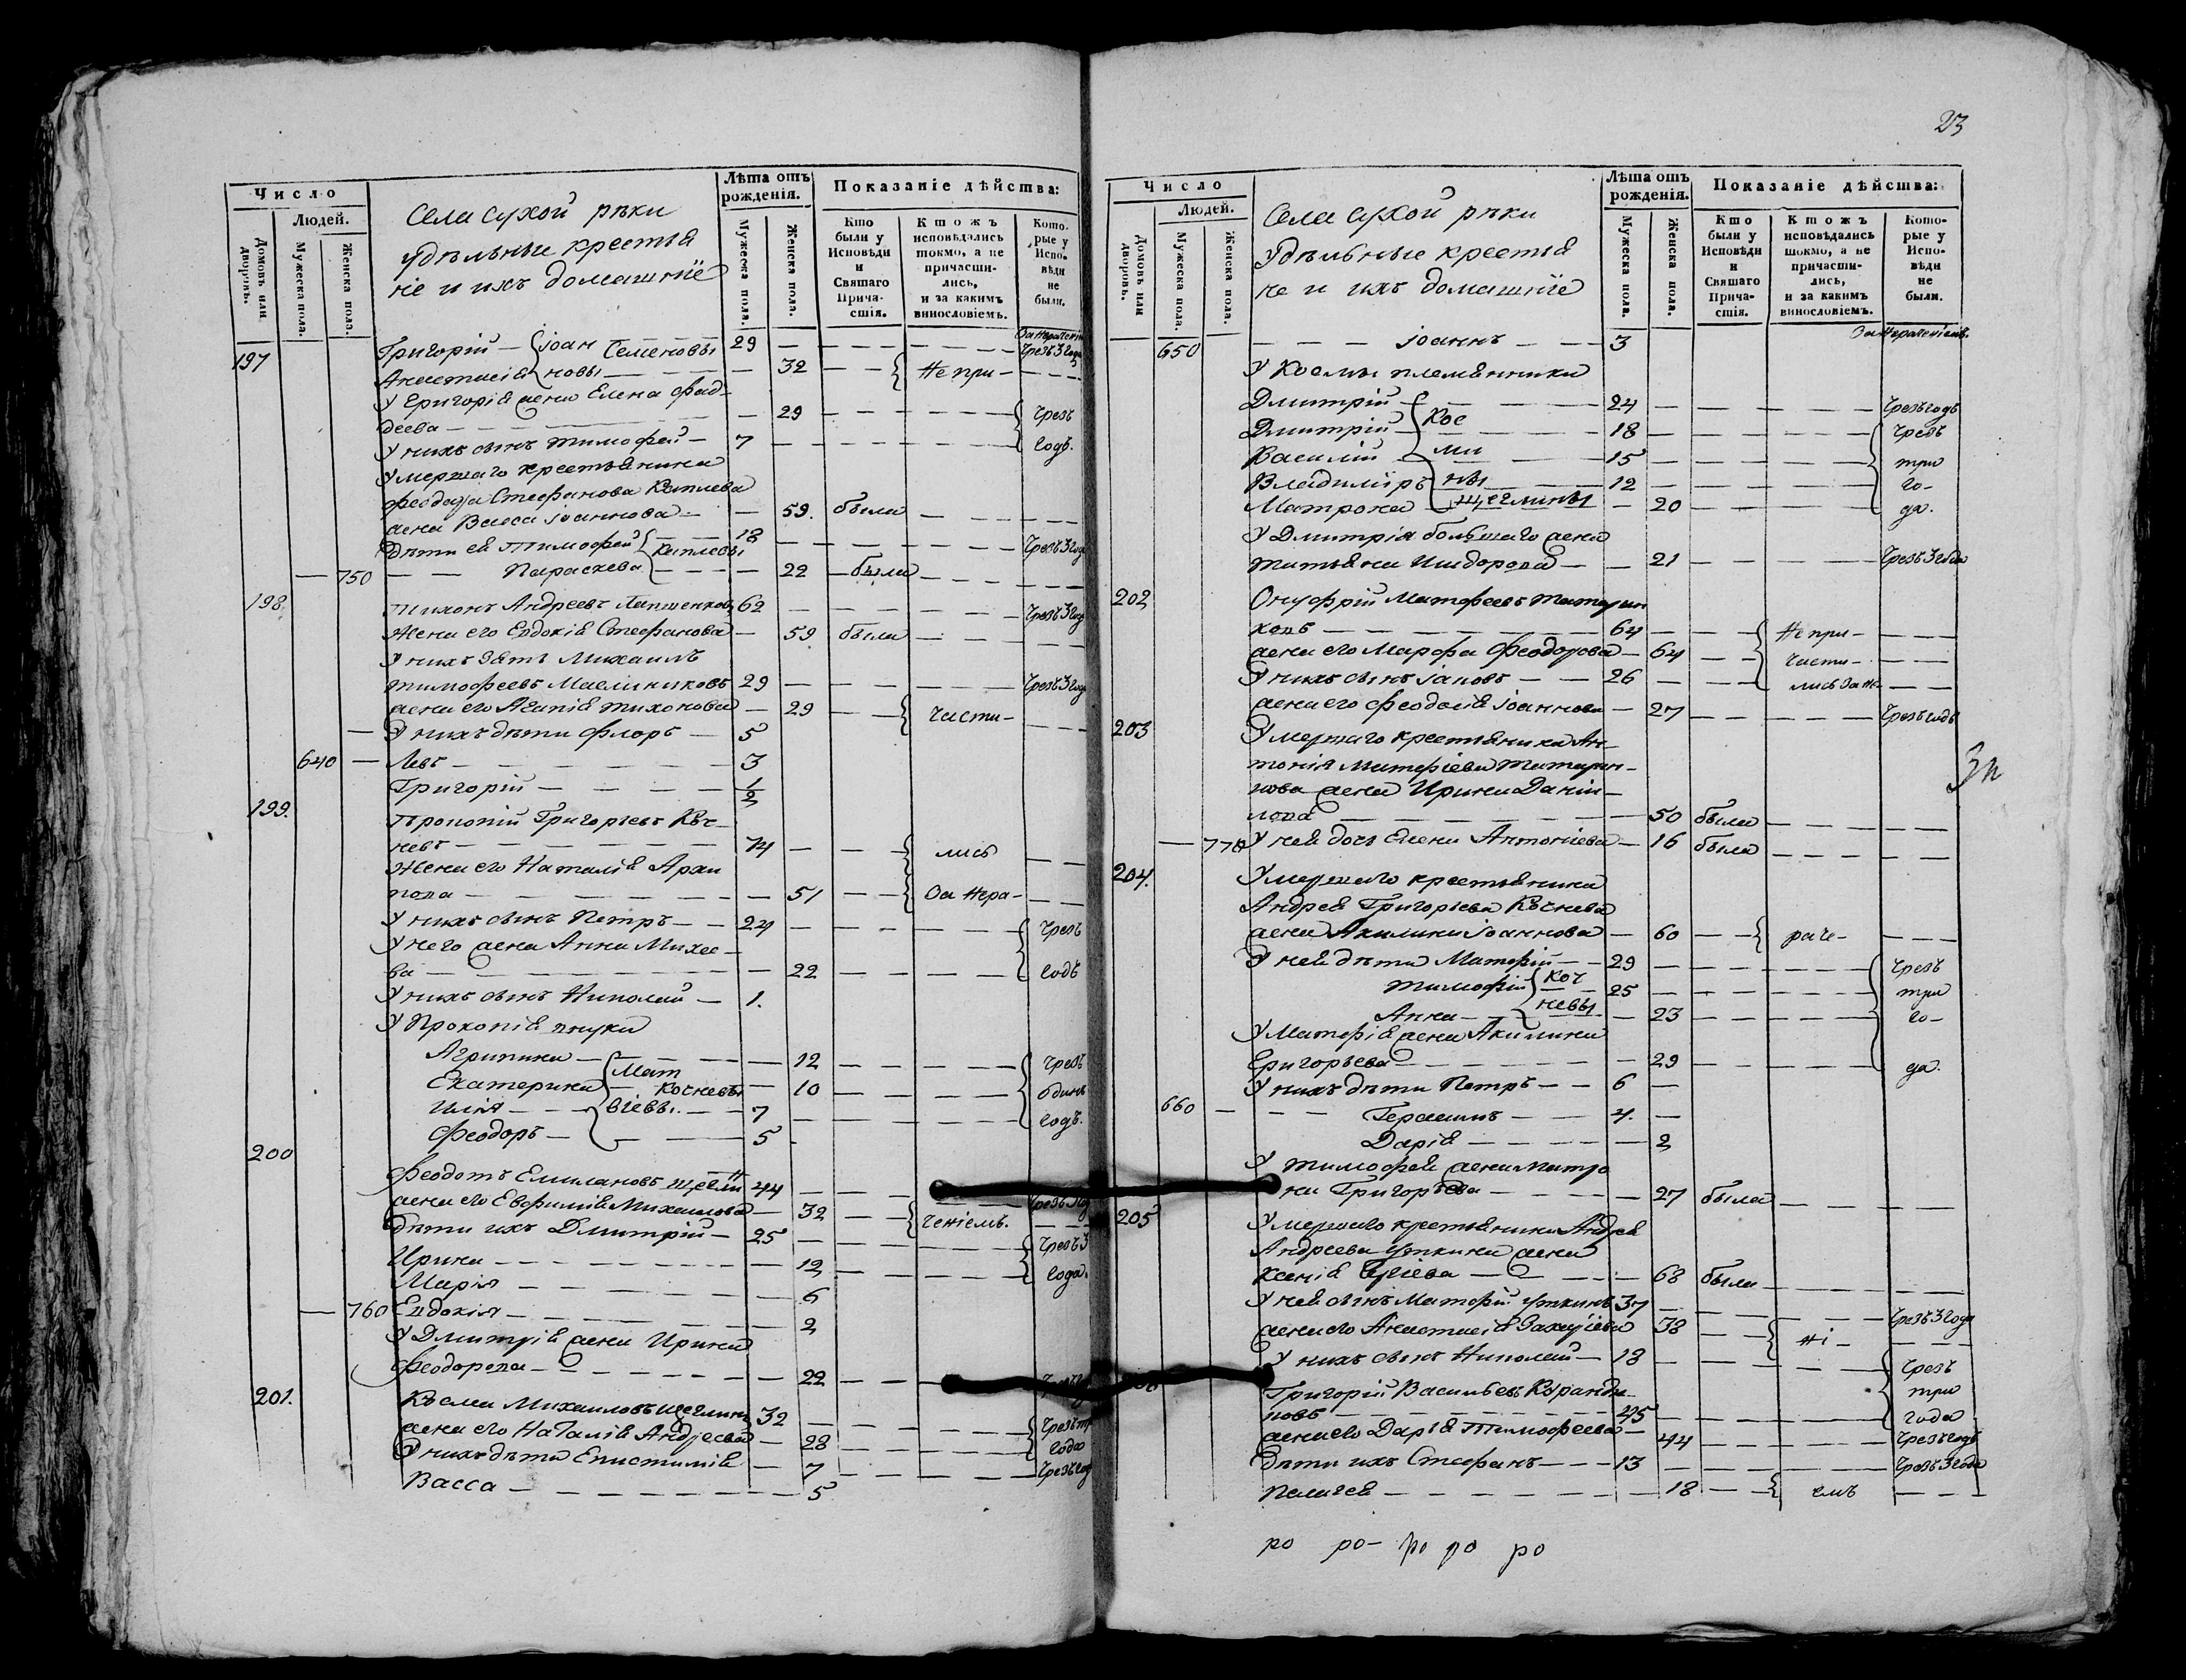 23
Число
Людей.
Домовъ или дворовъ.
Мужеска пола.
Женска пола.
Села Сухой рѣки
удѣльные крестья
не и ихъ домашніе
Лѣта отъ рожденія.
Мужеска пола.
Женска пола.
Показаніе дѣйства:
Кто были у Исповѣди и Святаго Прича-стія.
Ктожъ исповѣдались токмо, а не причасти-лись, и за какимъ винословіемъ.
Кото-рые у Испо-вѣди не были.
197 Григорій — Іоан Семеновы 29 Чрезъ 3 года
Анастасія новы 32 Не при-
У Григорія жена Елена Фад-
деева 29 Чрезъ
У нихъ сынъ Тимофей 7 годъ.
Умершаго крестьянина
Феодора Стефанова
жена Васса Іоаннова 59. была
Дѣти ея Тимофей 18 Чрезъ 3 года
750 Параскева 22 была
198. Тихонъ Андреевъ 62 Чрезъ 3 года
Жена его Евдокія Стефанова 59 была
У нихъ зять Михаилъ
Тимофеевъ Масленниковъ 29 Чрезъ 3 года
жена его Агапія Тихонова 29 части-
У нихъ дѣти Флоръ 5
640 Левъ 3
Григорій 1/2
199. Прокопій Григорьевъ Коч-
невъ 74 лись
Жена его Наталія Архи
пова 51 За нера-
У нихъ сынъ Петръ 24 Чрезъ
У него жена Анна Михее-
ва 22 годъ
У нихъ сынъ Николай 1.
У Прокопія внуки
Агрипина 12 Чрезъ
Екатерина Мат Кочневы 10 одинъ
Илія віевы. 7 годъ.
Феодоръ 5
200 Феодотъ Емилановъ 44
жена его Евфимія Михаилова 32 ченіемъ.
Дѣти ихъ Дмитрій 25 Чрезъ 3
Ирина 12 года.
Марія 6
760 Евдокія 2
У Дмитрія жена Ирина
Феодорова 22
201. Косма Михаиловъ Щеглинъ 32 Чрезъ
жена его Наталія Андреева 28 года
У нихъ дѣти Епистимія 7 Чрезъ год
Васса 5
Число
Людей.
Домовъ или дворовъ.
Мужеска пола.
Женска пола.
Села Сухой рѣки
Удѣльные крестья
не и ихъ домашніе
Лѣта отъ рожденія.
Мужеска пола.
Женска пола.
Показаніе дѣйства:
Кто были у Исповѣди и Святаго Прича-стія.
Ктожъ исповѣдались токмо, а не причасти-лись, и за какимъ винословіемъ.
Кото-рые у Испо-вѣди не были.
За нераченіемъ.
650 Іоаннъ 3
У Космы племянники
Дмитрій 24 Чрезъ годъ
Дмитрій Кос 18 Чрезъ
Василій ми 15 три
Владиміръ ны 12 го-
Матрона Щеглины 20 да.
У Дмитрія большаго жена
Татьяна Исидорова 21 Чрезъ 3 года
202 Онуфрій Матфеевъ Татарин
ковъ 64 Не при-
жена его Марфа Феодорова 64 части-
У нихъ сынъ Іаковъ 26 лись за не-
жена его Феодосія Іоаннова 27 Чрезъ годъ
203 Умершаго крестьянина Ан-
тонія Матфіева Татарин-
кова жена Ирина Даніи-
лова 50 была
770 У нея дочь Елена Антоніева 16 была
204. Умершаго крестьянина
Андрея Григорьева Кочнева
жена Акилина Іоаннова 60 раче-
У нея дѣти Матфій 29 Чрезъ
Тимофій Коч 25 три
Анна невы 23 го-
У Матфія жена Акилина
Григорьева 29 да.
У нихъ дѣти Петръ 6
660 Герасимъ 4.
Дарія 2
У Тимофея жена Матро
на Григорьева 27 была
205 Умершаго крестьянина Андрея
Андреева Уткина жена
Ксенія 68 была
У нея сынъ Матфій Уткинъ 37 Чрезъ 3 года
жена его Анастасія Захаріева 38 ні-
У нихъ сынъ Николай 18 Чрезъ
Григорій Васильевъ три
новъ 45 года
жена его Дарья Тимофеева 44 Чрезъ годъ
Дѣти ихъ Стефанъ 13 Чрезъ 3 года
Пелагея 18 емъ
ро ро- ро ро ро